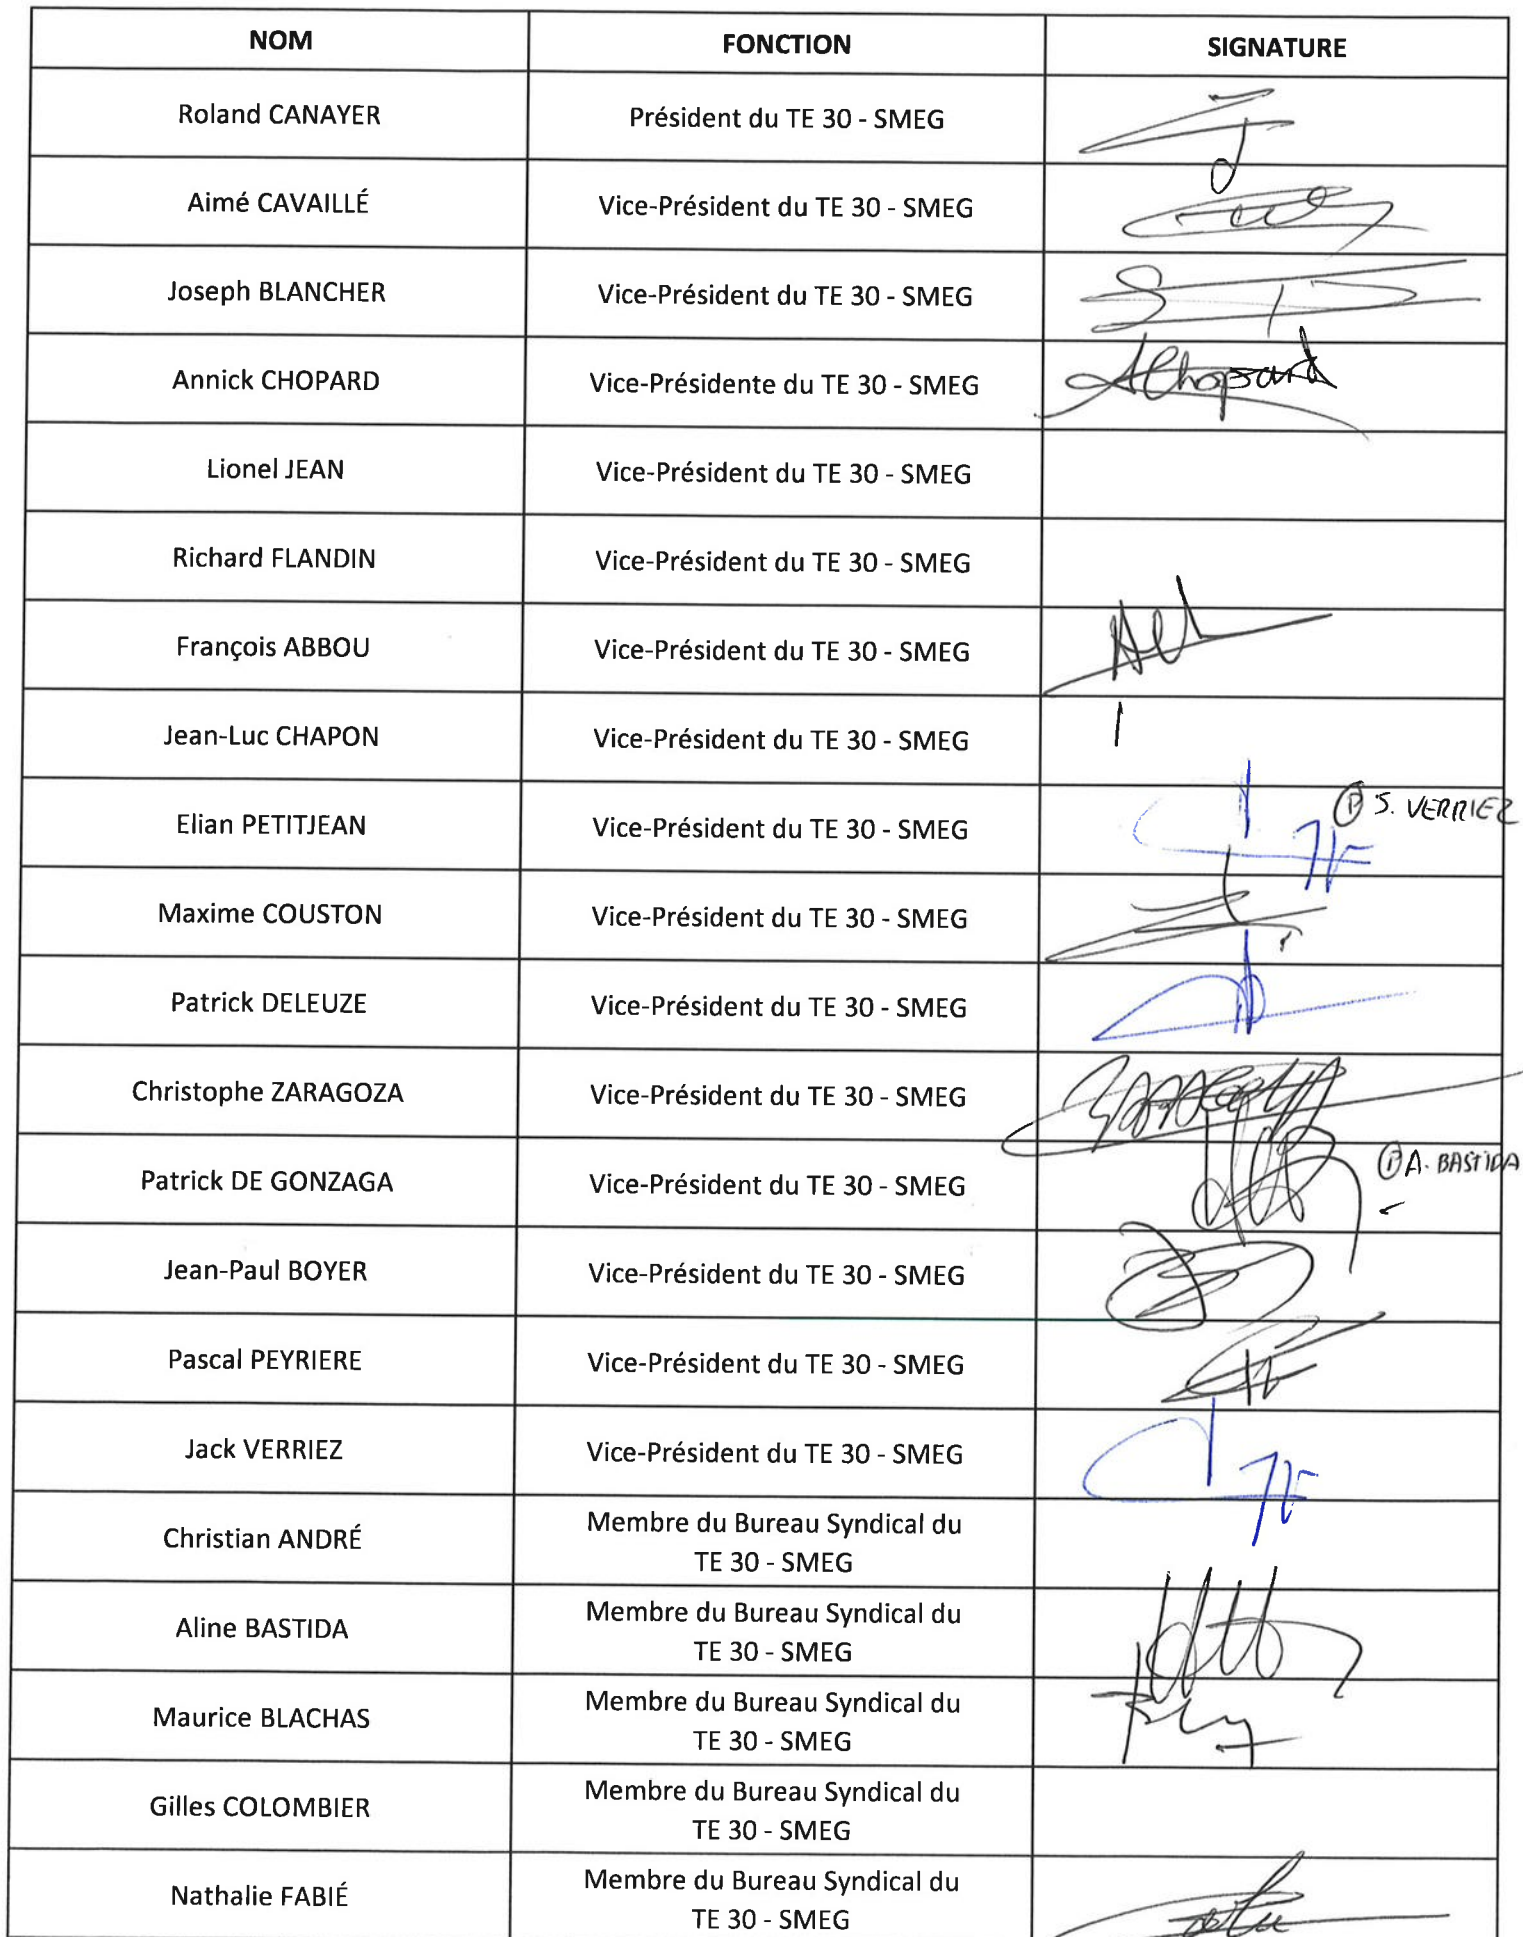 NOM FONCTION SIGNATURE
Roland CANAYER Président du TE 30 - SMEG
Aimé CAVAILLÉ Vice-Président du TE 30 - SMEG
Joseph BLANCHER Vice-Président du TE 30 - SMEG
Annick CHOPARD Vice-Présidente du TE 30 - SMEG AChopard
Lionel JEAN Vice-Président du TE 30 - SMEG
Richard FLANDIN Vice-Président du TE 30 - SMEG
François ABBOU Vice-Président du TE 30 - SMEG
Jean-Luc CHAPON Vice-Président du TE 30 - SMEG
Elian PETITJEAN Vice-Président du TE 30 - SMEG Ⓟ S. VERRIEZ
Maxime COUSTON Vice-Président du TE 30 - SMEG
Patrick DELEUZE Vice-Président du TE 30 - SMEG
Christophe ZARAGOZA Vice-Président du TE 30 - SMEG
Patrick DE GONZAGA Vice-Président du TE 30 - SMEG Ⓟ A. BASTIDA
Jean-Paul BOYER Vice-Président du TE 30 - SMEG
Pascal PEYRIERE Vice-Président du TE 30 - SMEG
Jack VERRIEZ Vice-Président du TE 30 - SMEG
Christian ANDRÉ Membre du Bureau Syndical du
TE 30 - SMEG
Aline BASTIDA Membre du Bureau Syndical du
TE 30 - SMEG
Maurice BLACHAS Membre du Bureau Syndical du
TE 30 - SMEG
Gilles COLOMBIER Membre du Bureau Syndical du
TE 30 - SMEG
Nathalie FABIÉ Membre du Bureau Syndical du
TE 30 - SMEG